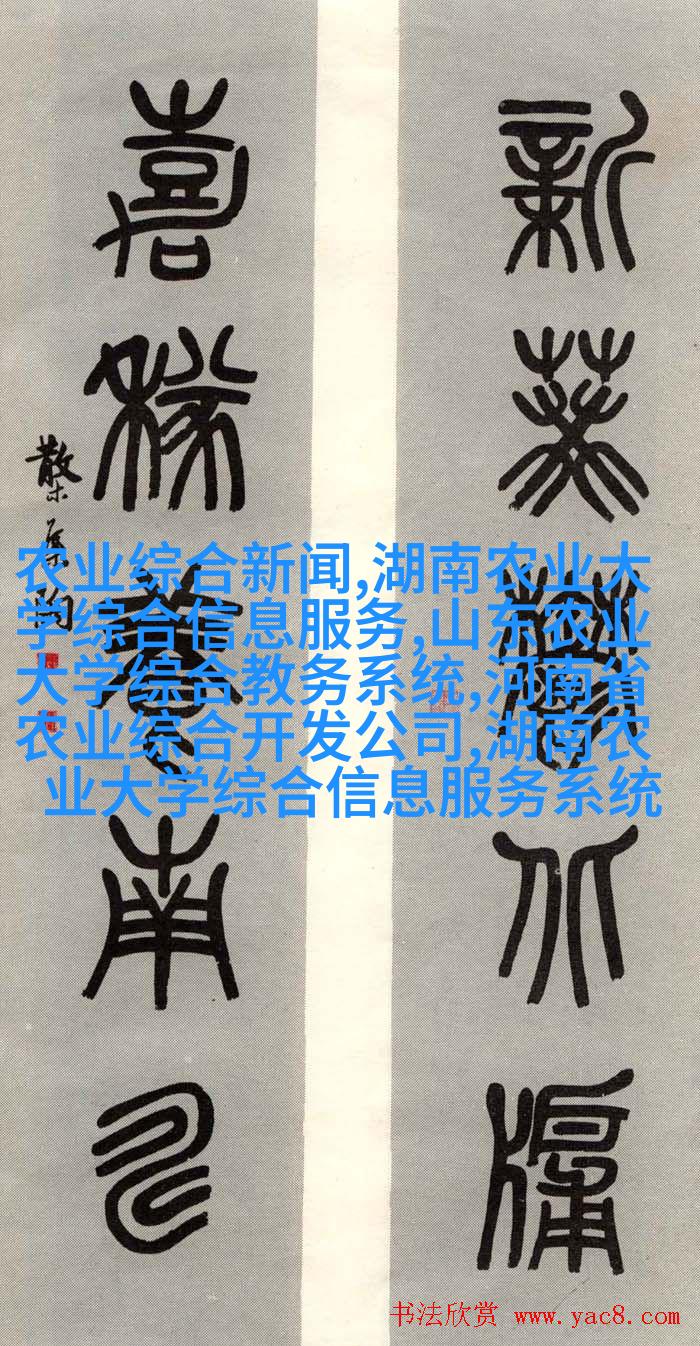 新葵鬱北牖
嘉穟養南疇
散木集陶
农业综合新闻,湖南农业大
学综合信息服务,山东农业
大学综合教务系统,河南省
农业综合开发公司,湖南农
业大学综合信息服务系统
书法欣赏 www.yac8.com